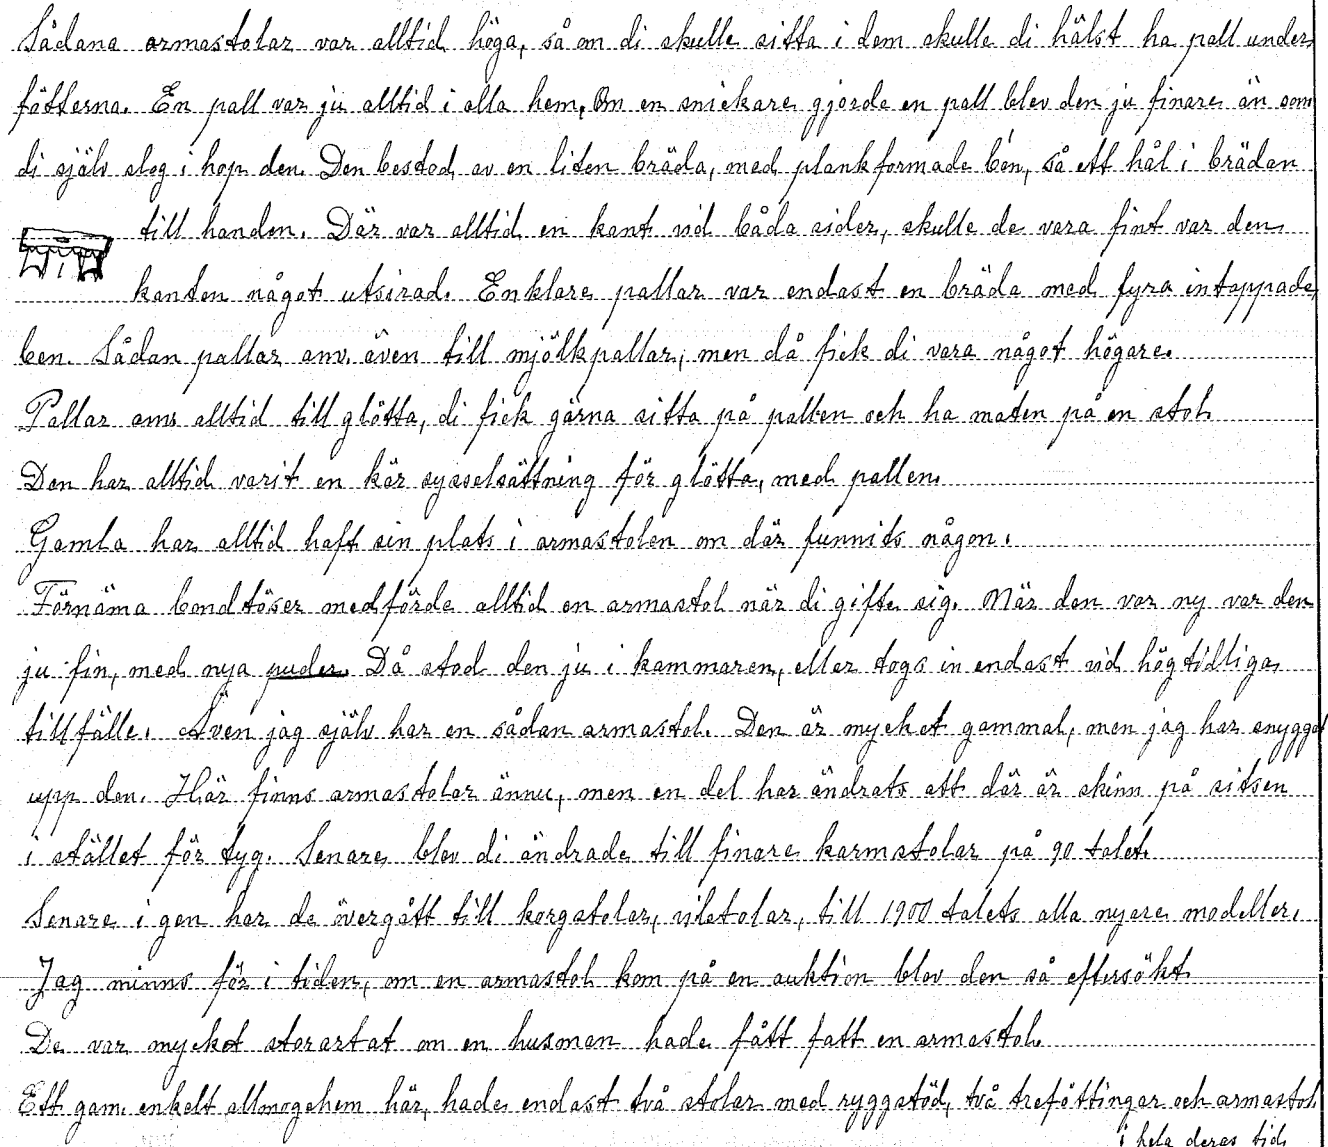 Sådana armastolar var alltid höga, så om di skulle sitta i dem skulle di hälst ha pall under
fötterna. En pall var ju alltid i alla hem. Om en snickare gjorde en pall blev den ju finare än som
di själv slog i hop den. Den bestod av en liten bräda, med plankformade ben, så ett hål i brädan
till handen. Där var alltid en kant vid båda sider, skulle de vara fint var den
kanten något utsirad. Enklare pallar var endast en bräda med fyra intappade
ben. Sådan pallar anv. även till mjölkpallar, men då fick di vara något högare.
Pallar anv. alltid till glötta, di fick gärna sitta på pallen och ha maten på en stol.
Den har alltid varit en kär sysselsättning för glötta, med pallen.
Gamla har alltid haft sin plats i armastolen om där funnits någon.
Förnäma bondtöser medförde alltid en armastol när di gifte sig. När den var ny var den
ju fin, med nya puder. Då stod den ju i kammaren, eller togs in endast vid högtidliga
tillfälle. Även jag själv har en sådan armastol. Den är mycket gammal, men jag har snyggat
upp den. Här finns armastolar ännu, men en del har ändrats att där är skinn på sitsen
i stället för tyg. Senare blev di ändrade till finare karmstolar på 90 talet.
Senare i gen har de övergått till korgstolar, vilstolar, till 1900 talets alla nyare modeller.
Jag minns för i tiden, om en armastol kom på en auktion blev den så eftersökt
De var mycket storartat om en husman hade fått fatt en armastol.
Ett gam. enkelt allmogehem här, hade endast två stolar med ryggstöd, två treföttingar och armastol
i hela deras tid.